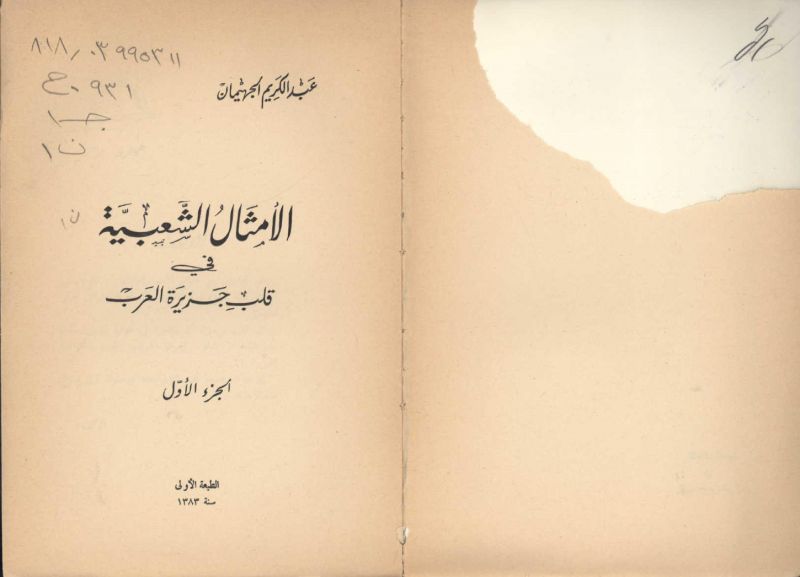 ٨١٨,٠٣٩٩٥٣١١
ج٠٩٣١
جـ١
ن١
عبد الكريم الجهيمان
الأمثال الشعبية
ن١
في
قلب جزيرة العرب
الجزء الأول
الطبعة الأولى
سنة ١٣٨٣